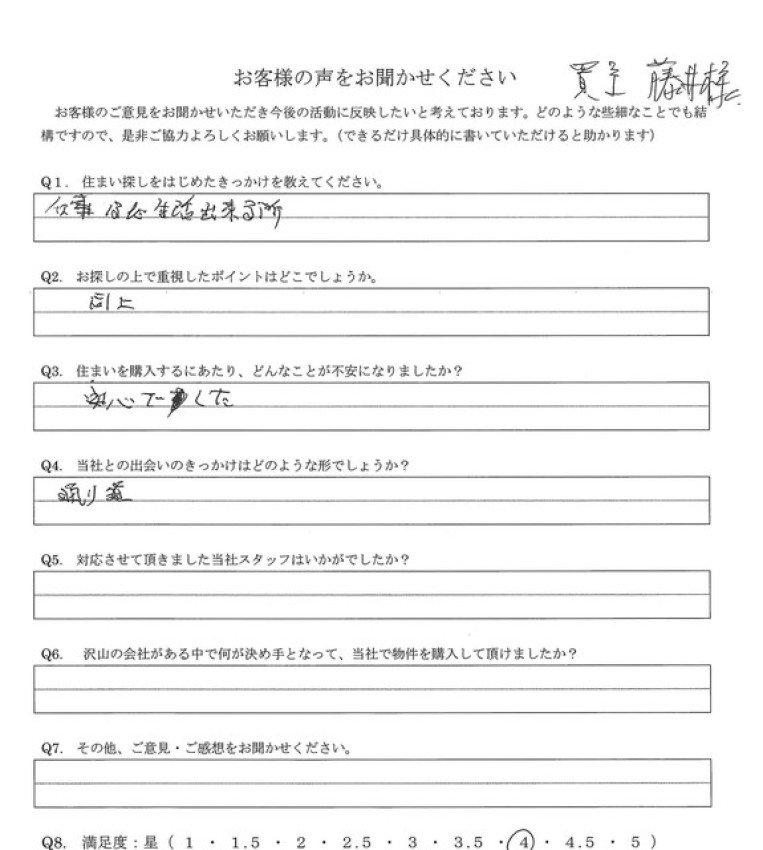 お客様の声をお聞かせください
買主 藤井様
お客様のご意見をお聞かせいただき今後の活動に反映したいと考えております。どのような些細なことでも結
構ですので、是非ご協力よろしくお願いします。（できるだけ具体的に書いていただけると助かります）
Q1. 住まい探しをはじめたきっかけを教えてください。
仕事 生活出来る所
Q2. お探しの上で重視したポイントはどこでしょうか。
同上
Q3. 住まいを購入するにあたり、どんなことが不安になりましたか？
安心でした
Q4. 当社との出会いのきっかけはどのような形でしょうか？
通り道
Q5. 対応させて頂きました当社スタッフはいかがでしたか？
Q6. 沢山の会社がある中で何が決め手となって、当社で物件を購入して頂けましたか？
Q7. その他、ご意見・ご感想をお聞かせください。
Q8. 満足度：星（ 1 ・ 1.5 ・ 2 ・ 2.5 ・ 3 ・ 3.5 ・ 4 ・ 4.5 ・ 5 ）